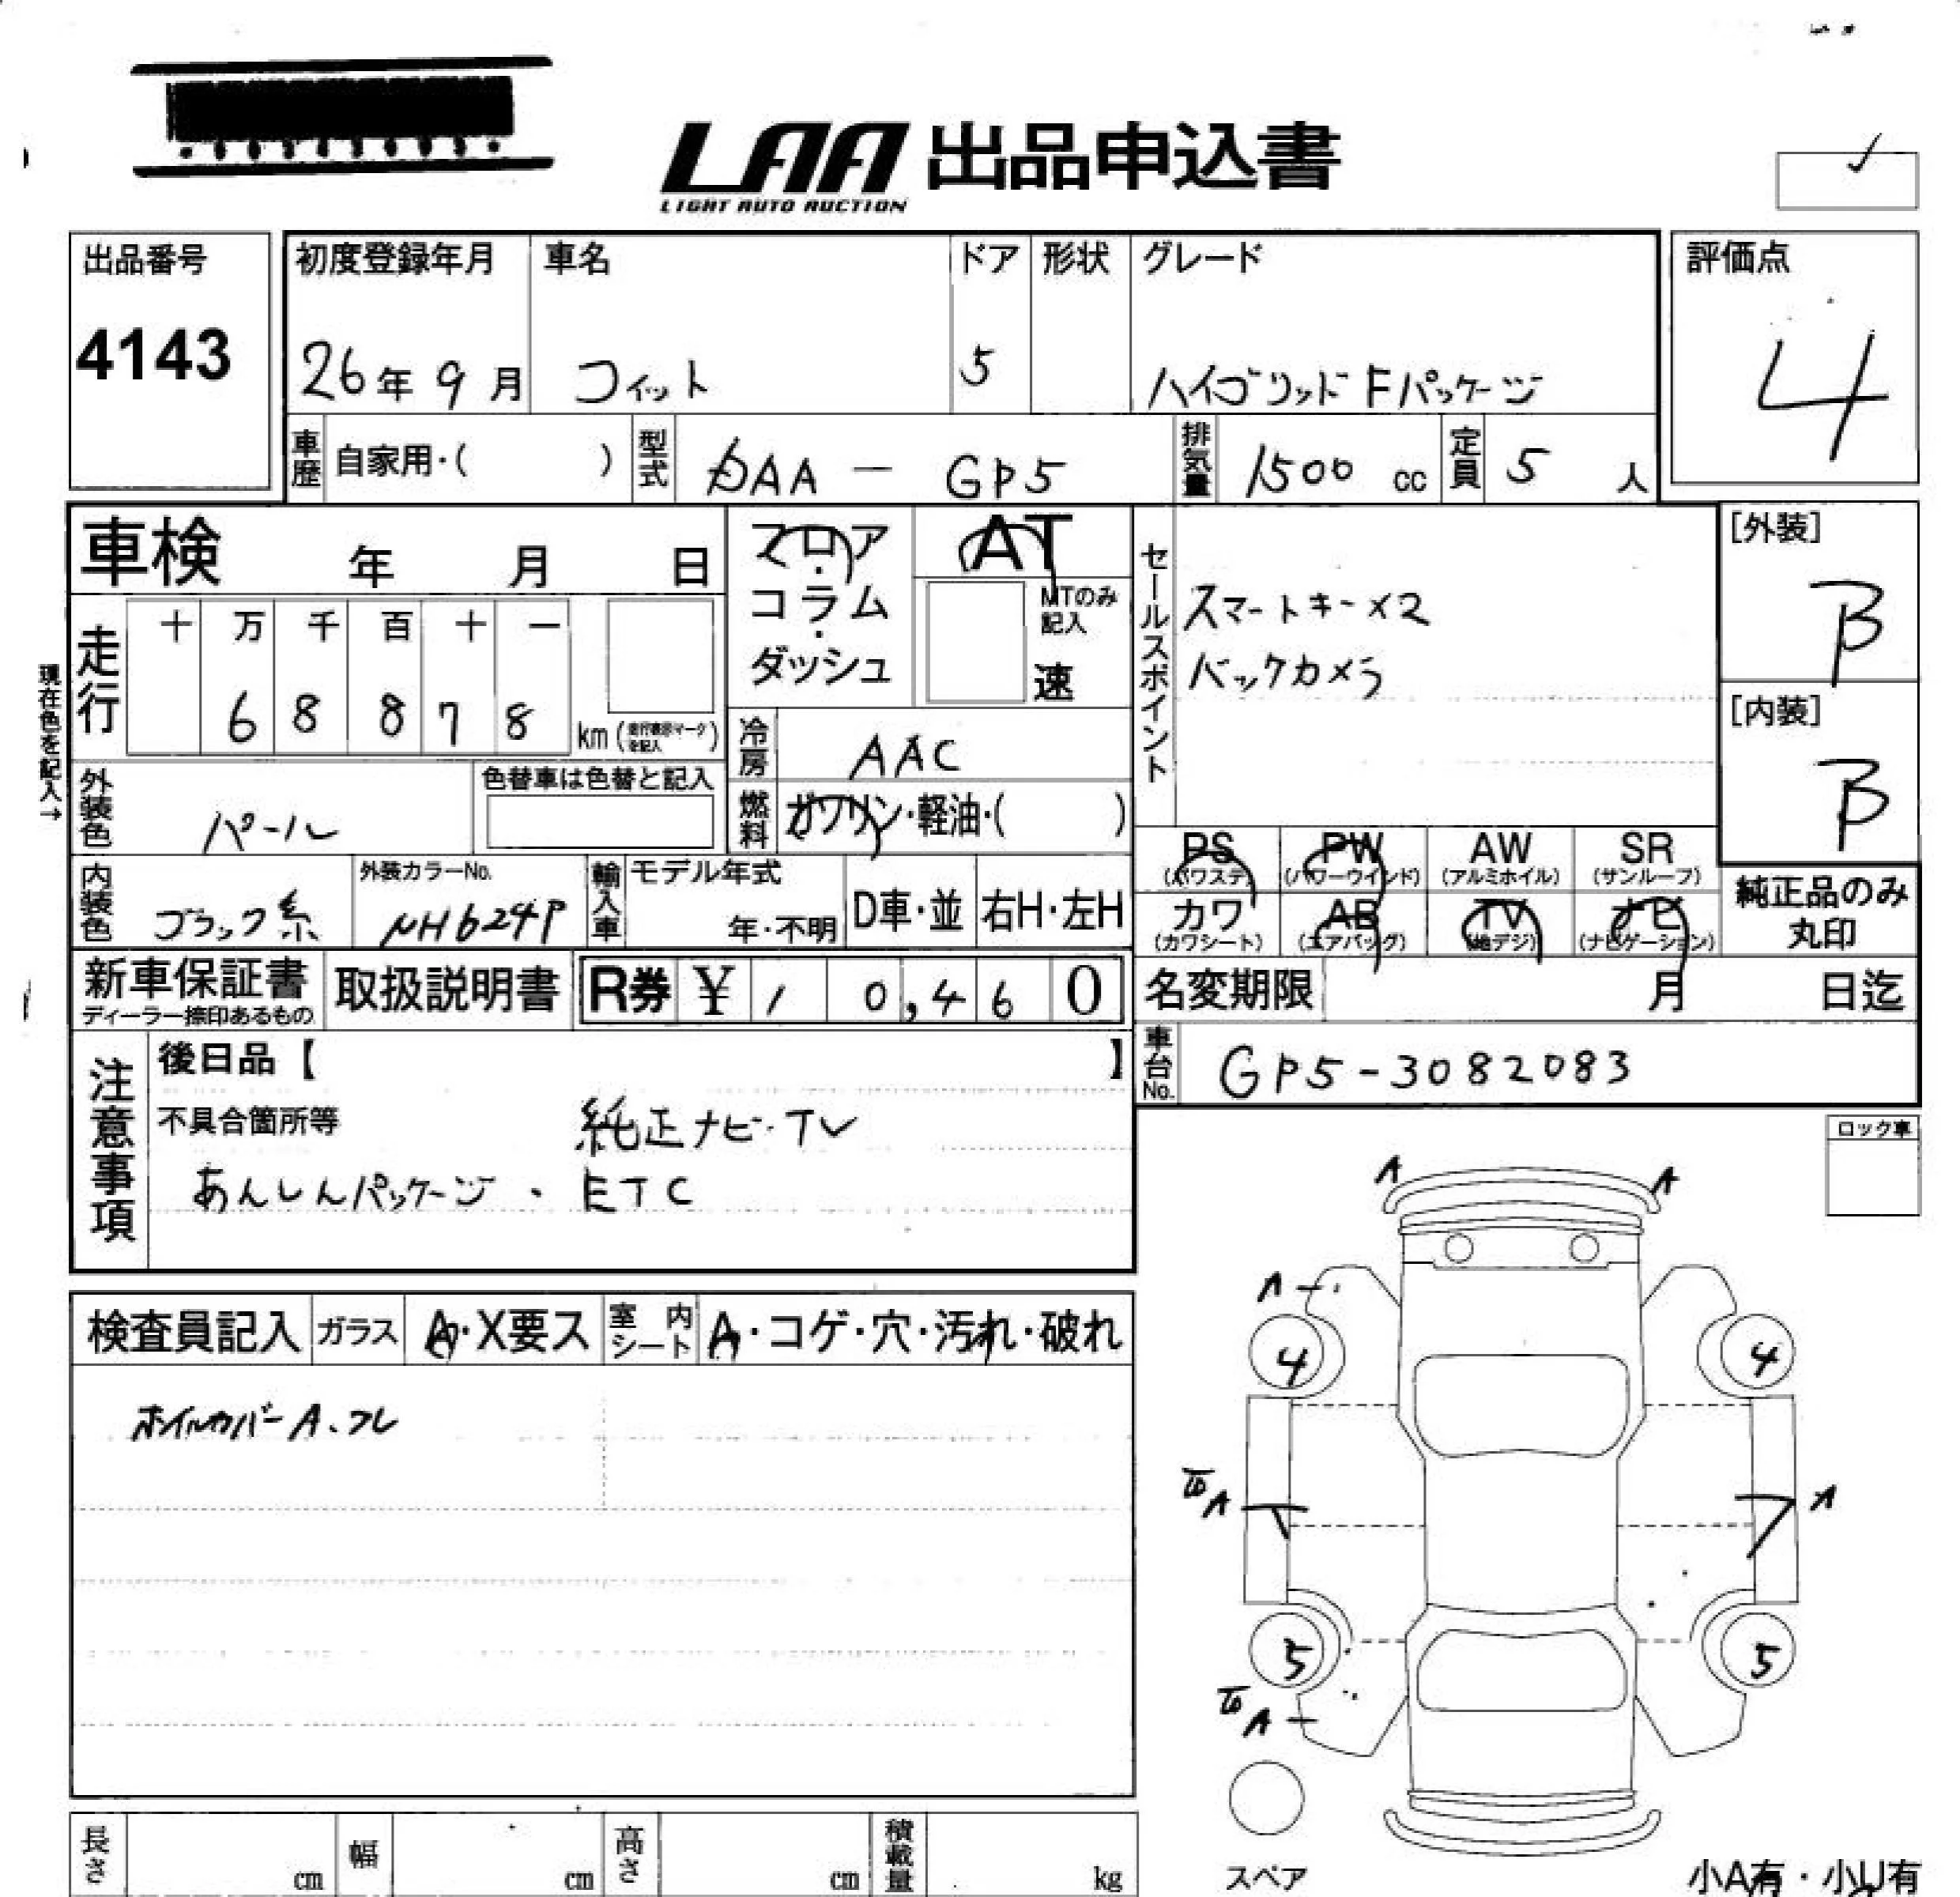 LAA 出品申込書
LIGHT AUTO AUCTION
出品番号
4143
初度登録年月
26年 9月
車名
フィット
ドア
5
形状
グレード
ハイブリッド Fパッケージ
評価点
4
車歴
自家用・( )
型式
DAA - GP5
排気量
1500 cc
定員
5 人
車検 年 月 日
フロア・コラム・ダッシュ
AT
MTのみ記入
速
セールスポイント
スマートキー×2
バックカメラ
[外装]
B
[内装]
B
現在色を記入→
走行
十 万 千 百 十 一
6 8 8 7 8
km (走行表示マークを記入)
冷房
AAC
外装色
パール
色替車は色替と記入
燃料
ガソリン・軽油・( )
内装色
ブラック系
外装カラーNo.
NH624P
輸入車
モデル年式
年・不明
D車・並
右H・左H
PS
(パワステ)
PW
(パワーウインド)
AW
(アルミホイル)
SR
(サンルーフ)
カワ
(カワシート)
AB
(エアバッグ)
TV
(地デジ)
ナビ
(ナビゲーション)
純正品のみ丸印
新車保証書
ディーラー捺印あるもの
取扱説明書
R券 ¥ 1 0,4 6 0
名変期限 月 日迄
車台No.
GP5-3082083
注意事項
後日品【 】
不具合箇所等
純正ナビ・TV
あんしんパッケージ、ETC
ロック車
検査員記入
ガラス
A・X要ス
室内シート
A・コゲ・穴・汚れ・破れ
ホイルカバーA、フレ
A A
A
4 4
A A
5 5
A
スペア
長さ cm
幅 cm
高さ cm
積載量 kg
小A有・小U有